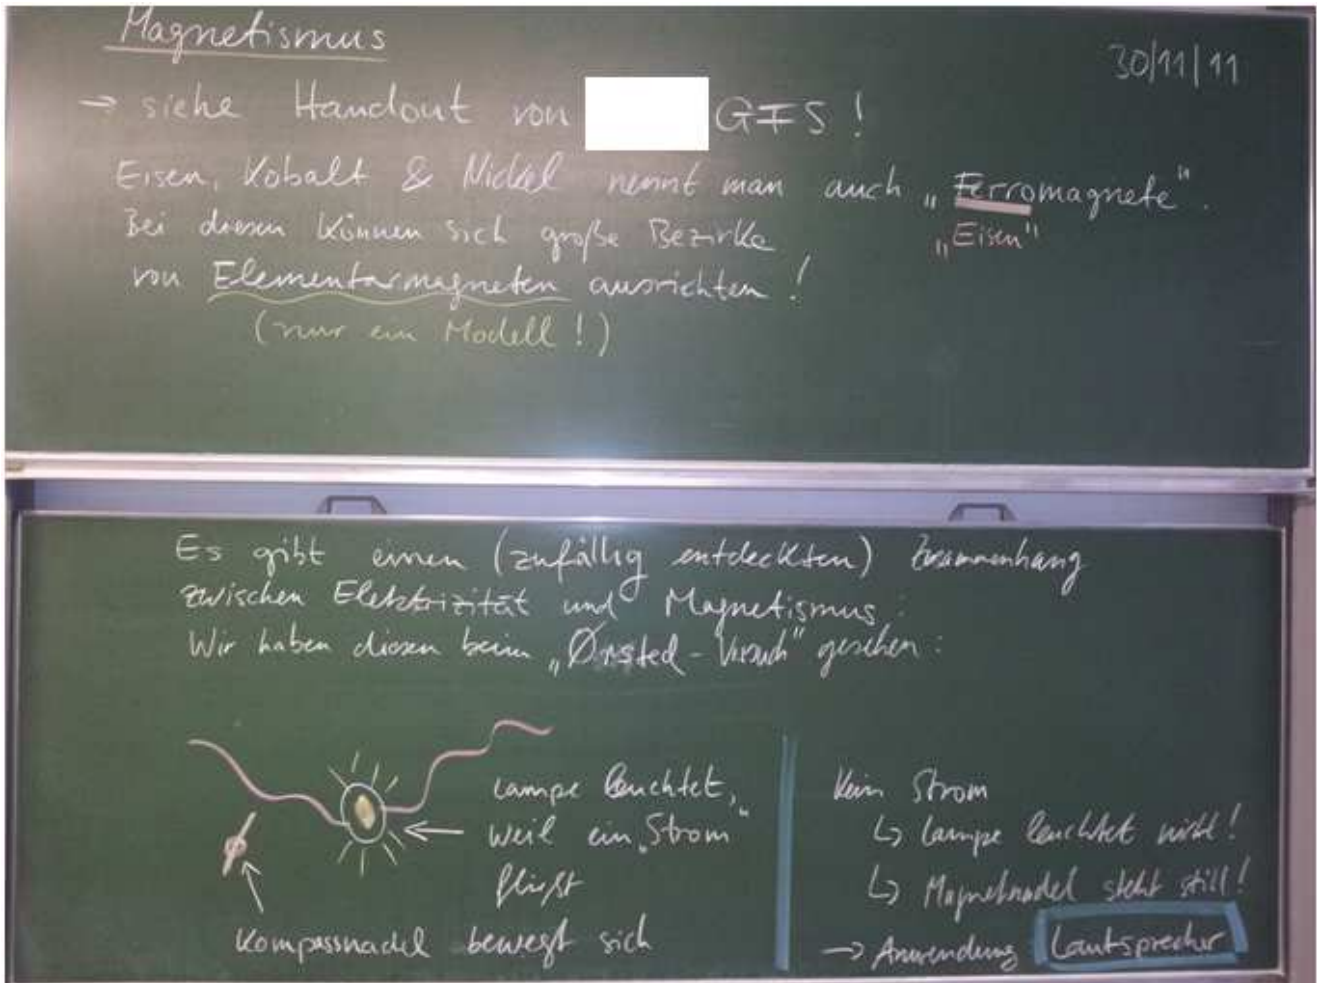 Magnetismus
30/11/11
→ siehe Handout von GFS!
Eisen, Kobalt & Nickel nennt man auch „Ferromagnete".
„Eisen"
Bei diesen können sich große Bezirke
von Elementarmagneten ausrichten!
(nur ein Modell!)
Es gibt einen (zufällig entdeckten) Zusammenhang
zwischen Elektrizität und Magnetismus:
Wir haben diesen beim „Ørsted-Versuch" gesehen:
Lampe leuchtet,
weil ein „Strom"
fließt
Kompassnadel bewegt sich
Kein Strom
↳ Lampe leuchtet nicht!
↳ Magnetnadel steht still!
→ Anwendung Lautsprecher